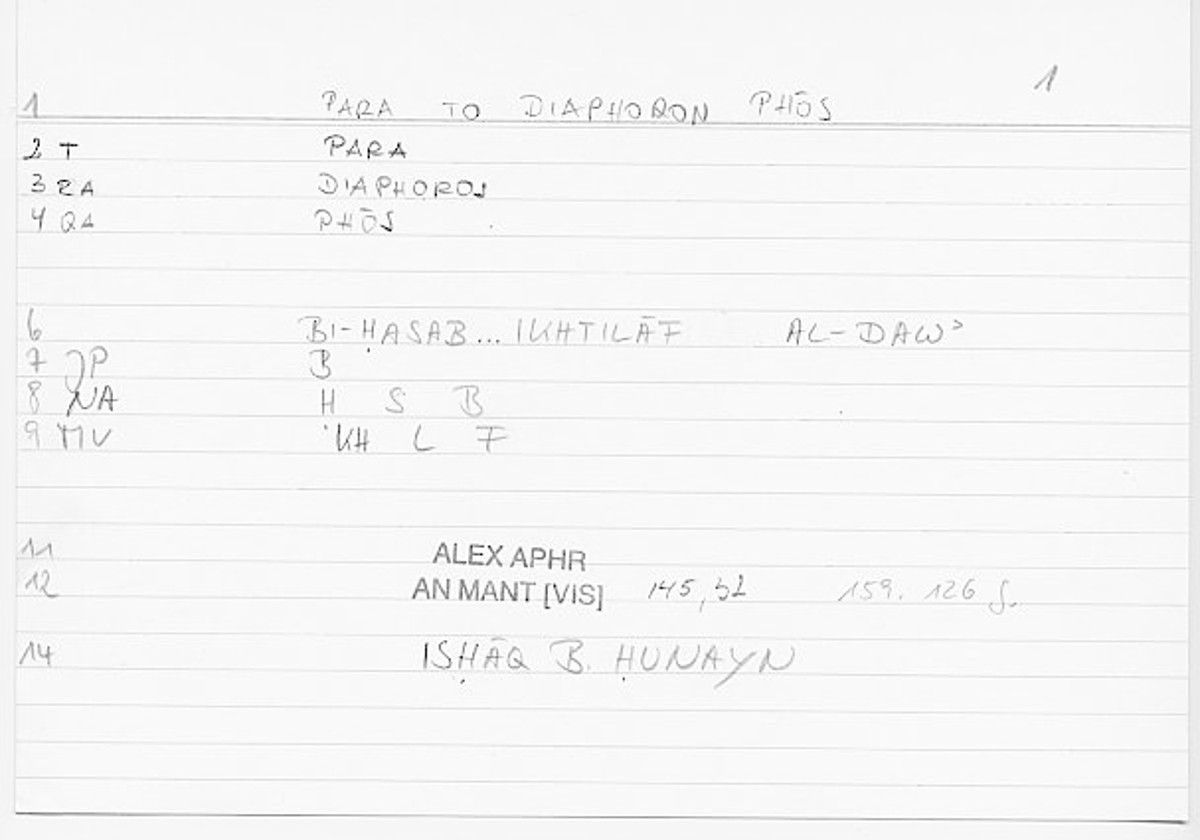 1
1 PARA TO DIAPHORON PHŌS
2 T PARA
3 ZA DIAPHOROS
4 QA PHŌS
6 BI-ḤASAB... IKHTILĀF AL-DAWʾ
7 JP B
8 NA Ḥ S B
9 MV KH L F
11 ALEX APHR
12 AN MANT [VIS] 145, 32 159. 126 f.
14 ISḤĀQ B. ḤUNAYN